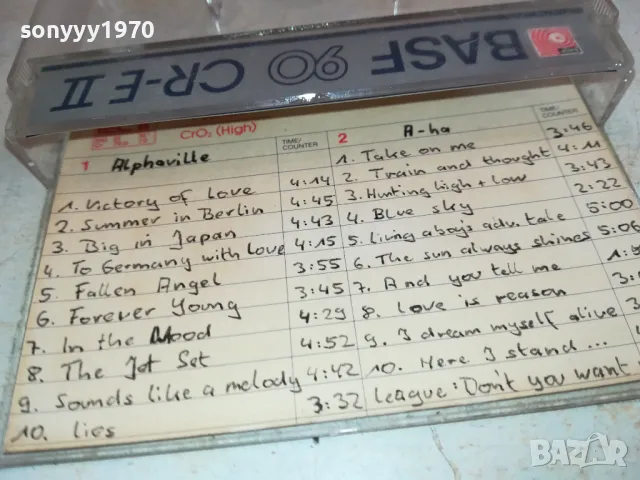 sonyyy1970
BASF 90 CR-E II
CrO₂ (High)
1 Alphaville
TIME/COUNTER
1. Victory of Love 4:14
2. Summer in Berlin 4:45
3. Big in Japan 4:43
4. To Germany with Love 4:15
5. Fallen Angel 3:55
6. Forever Young 3:45
7. In the Mood 4:29
8. The Jet Set 4:52
9. Sounds like a melody 4:42
10. Lies 3:32
2 A-ha
TIME/COUNTER
1. Take on me 3:46
2. Train and thought 4:11
3. Hunting high + low 3:43
4. Blue sky 2:22
5. Living aboys adv. tale 5:00
6. The sun always shines 5:06
7. And you tell me
8. Love is reason
9. I dream myself alive
10. Here I stand...
League: Don't you want
BAZAR
bazar.bg